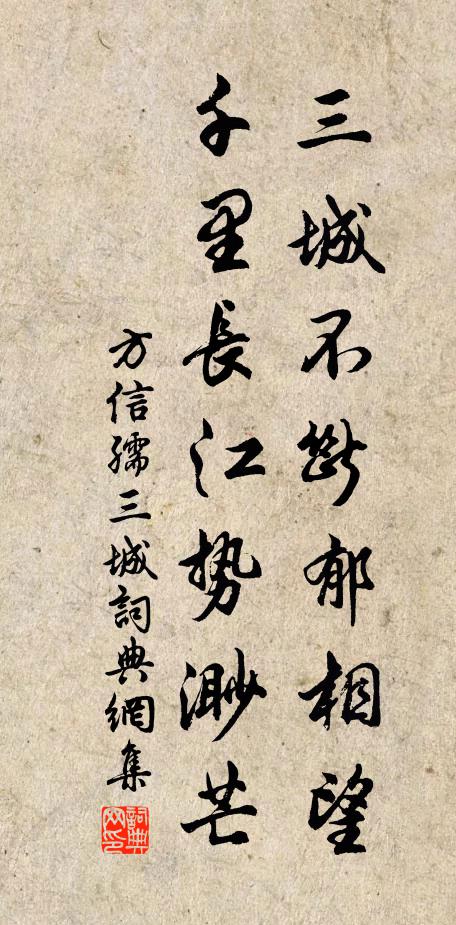 三城不断郁相望
千里長江势渺茫
方信孺三城詞典網集
詞典
网印